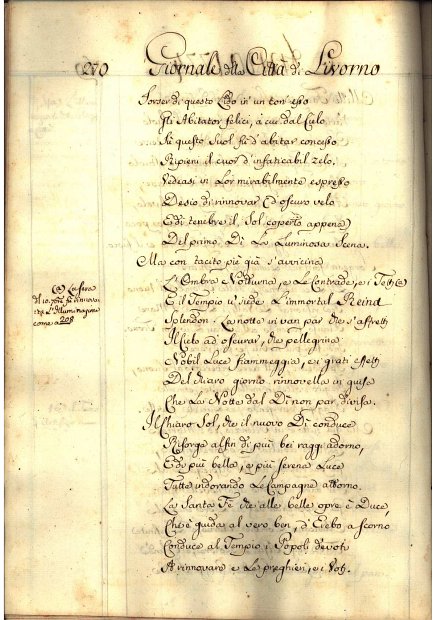 270 Giornale della Città di Livorno
Forser di questo Lido in un con esso
Gli Abitator felici, à cui dal Cielo
Di questo Suol fù d'abitar concesso
Ripieni il cuor d'infaticabil zelo.
Vedeasi in Lor mirabilmente espresso
Desio di rinnovar (d'oscuro velo
E di tenebre il Sol coperto appena)
Del primo Dì La Luminosa Scena.
Ma con tacito piè già s'avvicina
L'Ombra Notturna, e Le Contrade, e i Tetti (a)
E il Tempio u' siede L'immortal Reina
Splendon: La notte in van par che s'affretti
Il Cielo ad oscurar, che pellegrina
Nobil Luce fiammeggia, e i grati effetti
Del chiaro giorno rinnovella in guisa
Che La Notte dal Dì non par divisa.
Il Chiaro Sol, che il nuovo Dì conduce
Risorge alfin di più bei raggi adorno,
E di più bella, e più serena Luce
Tutte indorando Le Campagne attorno.
La Santa Fè che alle belle opre è Duce
Ch'è guida al vero ben, d'Erebo a scorno
Conduce al Tempio i Popoli devoti
A rinnovare e Le preghiere, e i Voti.
(a) La sera
si rinnovò
L'Illuminazione
come a 208